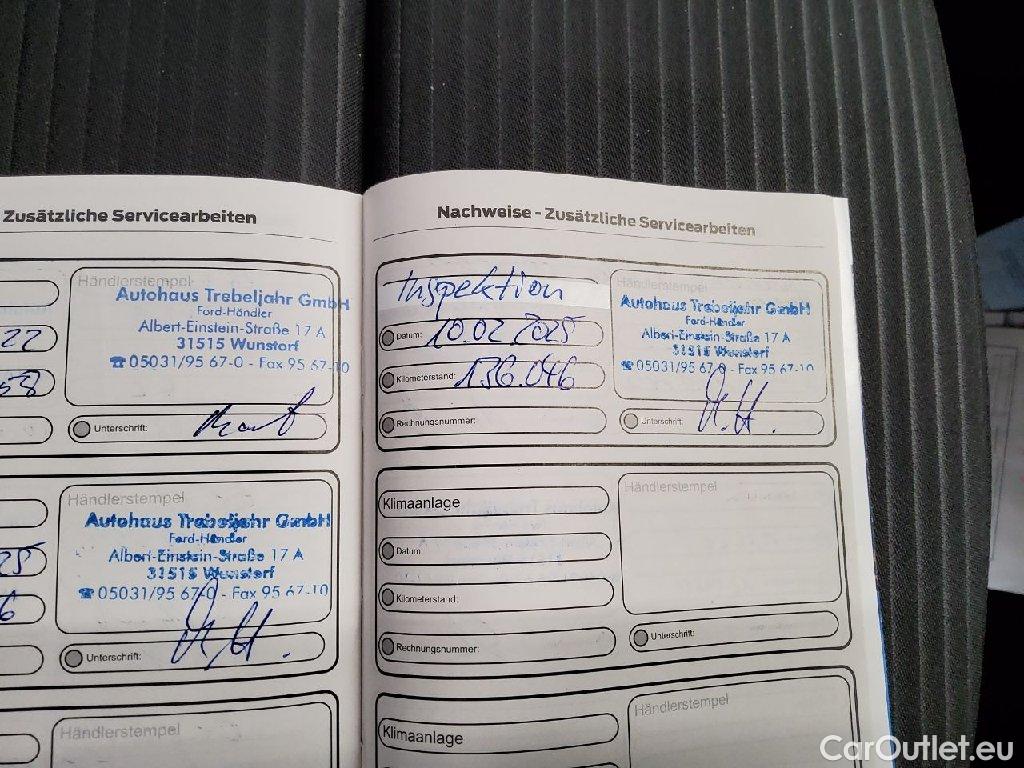 Zusätzliche Servicearbeiten
Händlerstempel
Autohaus Trebeljahr GmbH
Ford-Händler
Albert-Einstein-Straße 17 A
31515 Wunstorf
☎ 05031/95 67-0 - Fax 95 67-10
22
58
Unterschrift:
Händlerstempel
Autohaus Trebeljahr GmbH
Ford-Händler
Albert-Einstein-Straße 17 A
31515 Wunstorf
☎ 05031/95 67-0 - Fax 95 67-10
25
6
Unterschrift:
Händlerstempel
Nachweise - Zusätzliche Servicearbeiten
Inspektion
Datum: 10.02.2025
Kilometerstand: 136.046
Rechnungsnummer:
Händlerstempel
Autohaus Trebeljahr GmbH
Ford-Händler
Albert-Einstein-Straße 17 A
31515 Wunstorf
☎ 05031/95 67-0 - Fax 95 67-10
Unterschrift:
Klimaanlage
Datum:
Kilometerstand:
Rechnungsnummer:
Händlerstempel
Unterschrift:
Klimaanlage
Händlerstempel
CarOutlet.eu